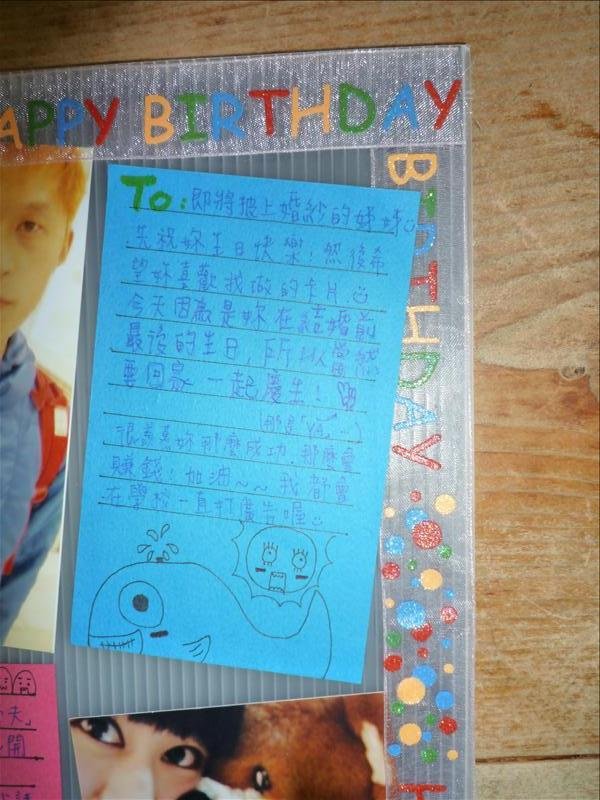 APPY BIRTHDAY
BIRTHDAY
To:即將披上婚紗的姊姊
先祝妳生日快樂!然後希
望妳喜歡我做的卡片
今天因為是妳在結婚前
最後的生日,所以當然
要回家一起慶生!
(那是"YA"…)
很羨慕妳那麼成功,那麼會
賺錢!加油~~我都會
在學校一直打廣告喔
夫」
開
H